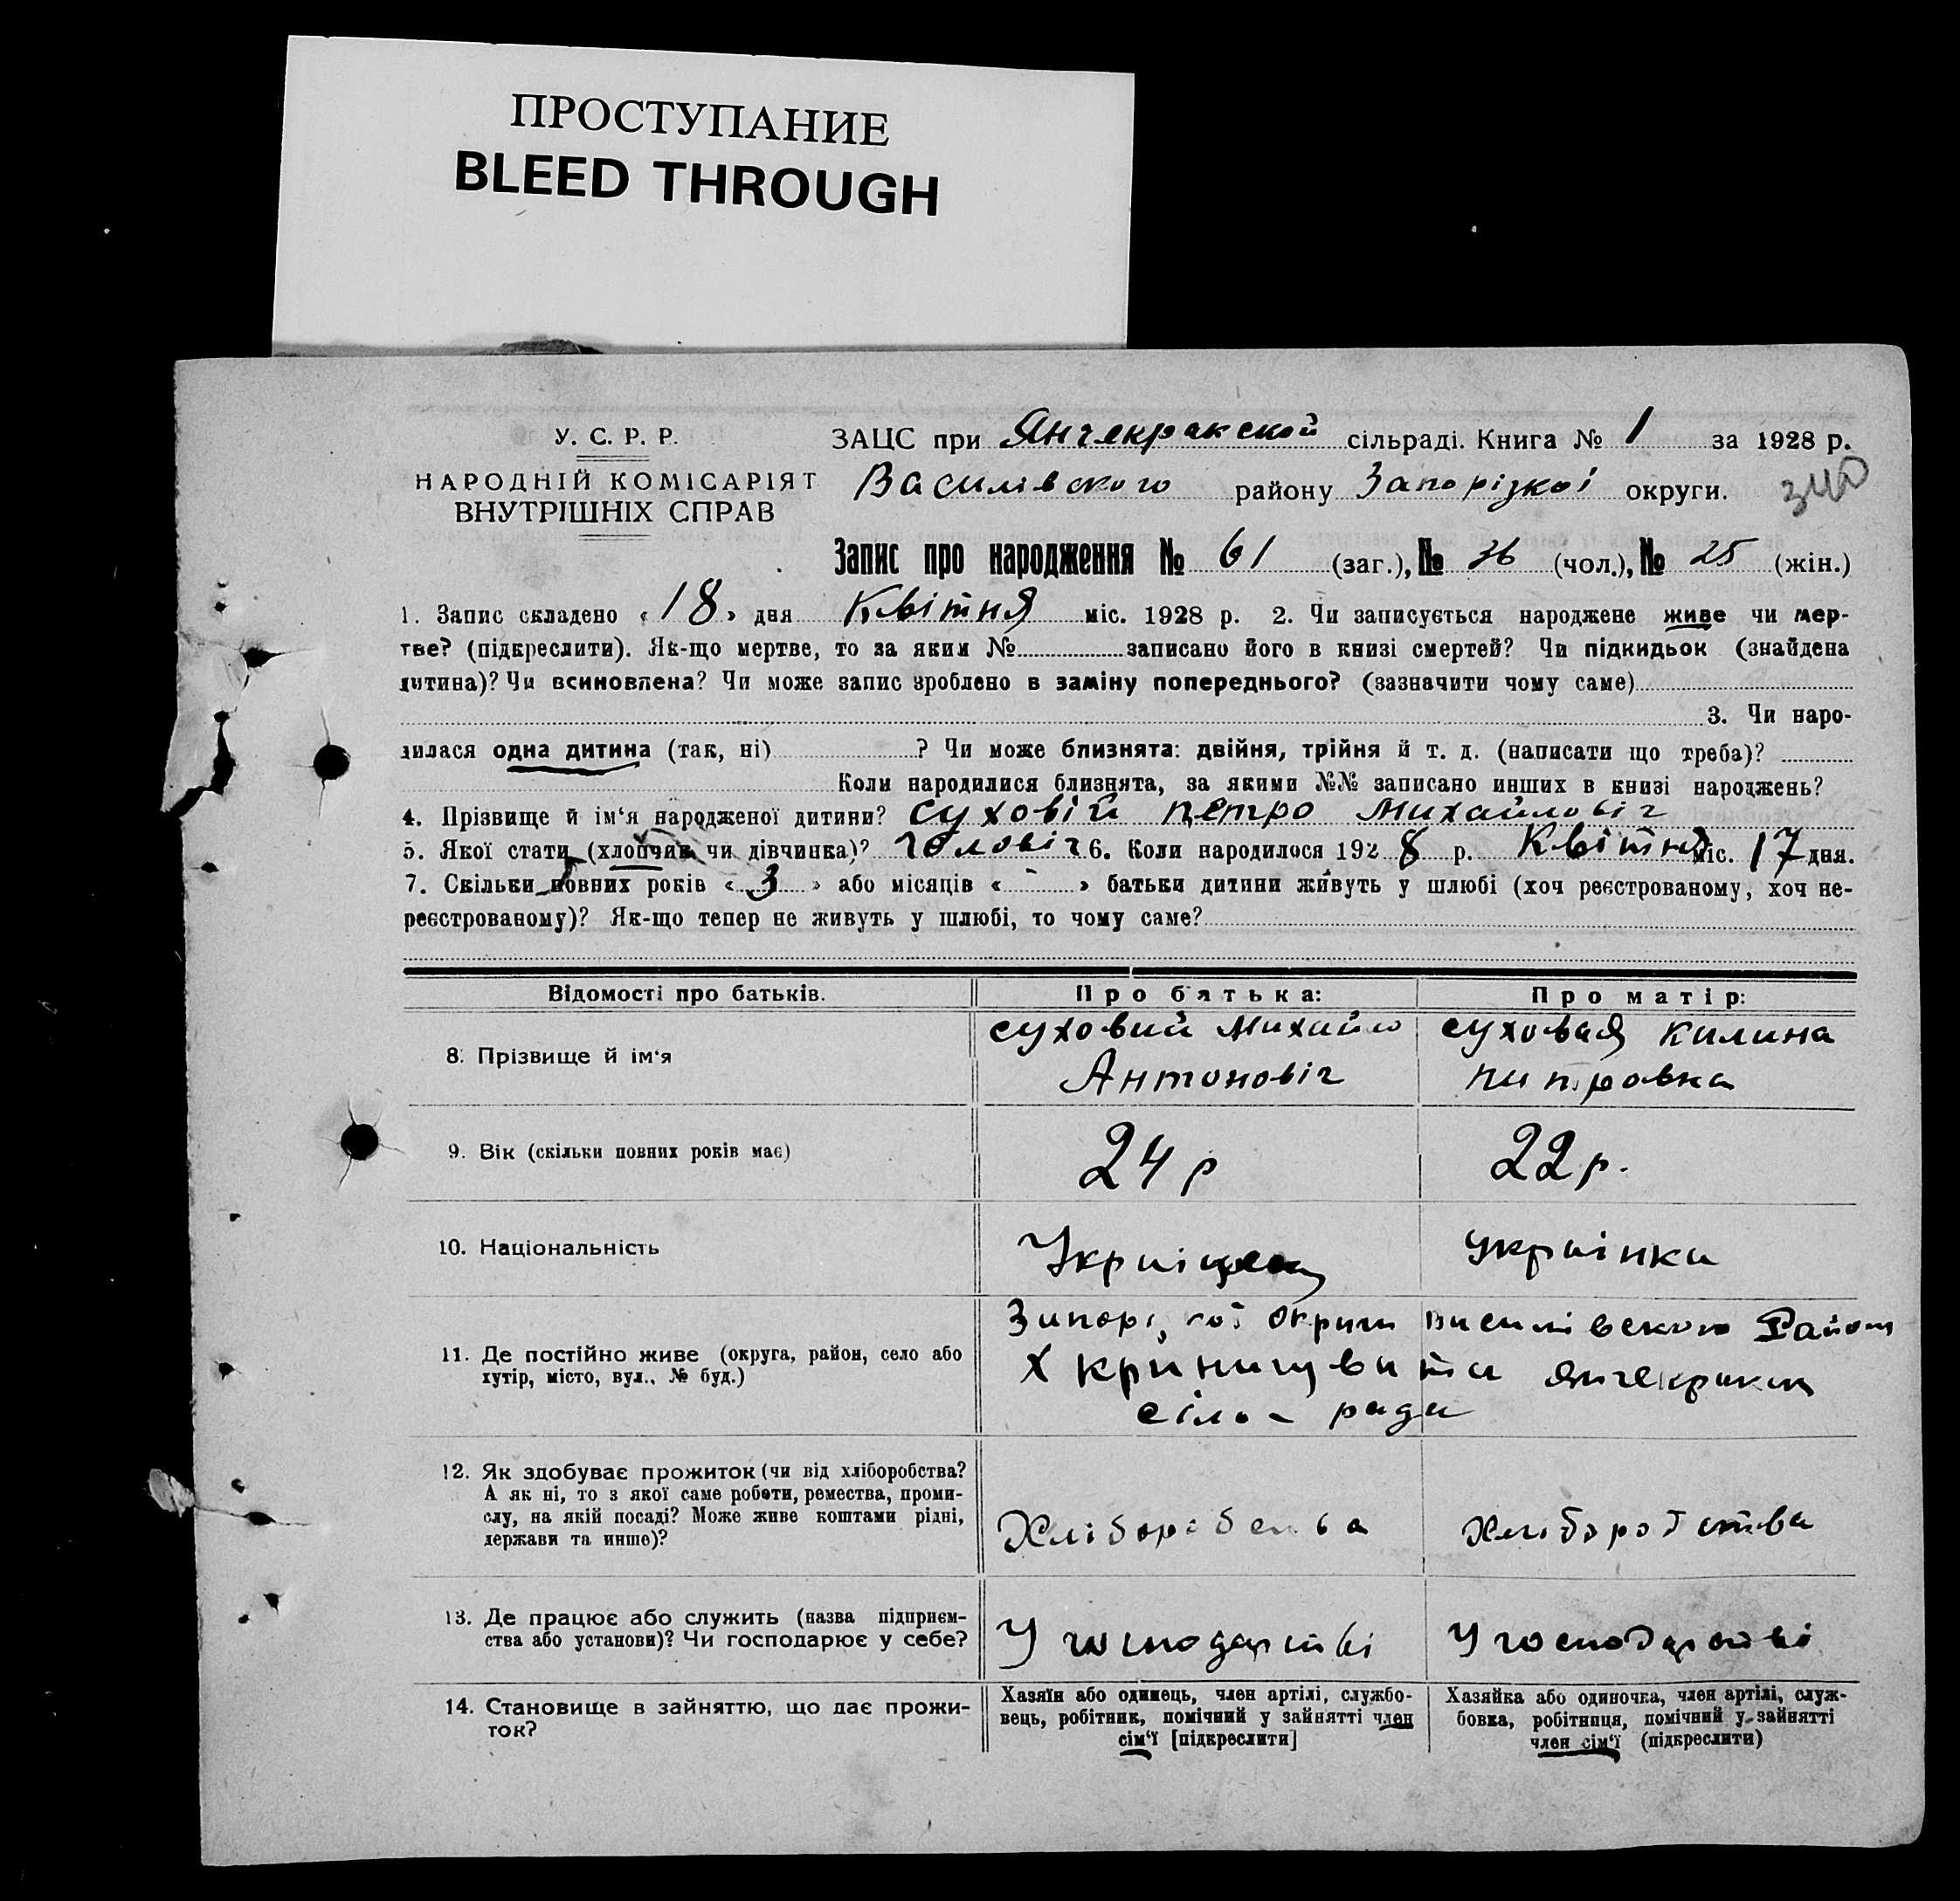 ПРОСТУПАНИЕ
BLEED THROUGH
У. С. Р. Р.
НАРОДНІЙ КОМІСАРІЯТ
ВНУТРІШНІХ СПРАВ
ЗАЦС при Янчекракской сільраді. Книга № 1 за 1928 р.
Василівского району Запорізкої округи.
340
Запис про народження № 61 (заг.), № 36 (чол.), № 25 (жін.)
1. Запис складено « 18 » дня Квітня міс. 1928 р. 2. Чи записується народжене живе чи мер-
тве? (підкреслити). Як-що мертве, то за яким № записано його в книзі смертей? Чи підкидьок (знайдена
дитина)? Чи всиновлена? Чи може запис зроблено в заміну попереднього? (зазначити чому саме)
3. Чи наро-
дилася одна дитина (так, ні) ? Чи може близнята: двійня, трійня й т. д. (написати що треба)?
Коли народилися близнята, за якими №№ записано инших в книзі народжень?
4. Прізвище й ім‘я народженої дитини? Суховій Петро Михайловіч
5. Якої стати (хлопчик чи дівчинка)? чоловіч 6. Коли народилося 192 8 р. Квітня міс. 17 дня.
7. Скільки повних років « 3 » або місяців « - » батьки дитини живуть у шлюбі (хоч реєстрованому, хоч не-
реєстрованому)? Як-що тепер не живуть у шлюбі, то чому саме?
Відомості про батьків. Про батька: Про матір:
8. Прізвище й ім‘я
суховий Михайло
Антоновіч
суховая Килина
питровна
9. Вік (скільки повних років має) 24 р 22 р.
10. Національність Украінец украінка
11. Де постійно живе (округа, район, село або
хутір, місто, вул., № буд.)
Запорізкої Округи Василівского Району
Х кринишувата Янчекракск
сіль - ради
12. Як здобуває прожиток (чи від хліборобства?
А як ні, то з якої саме роботи, ремества, проми-
слу, на якій посаді? Може живе коштами рідні,
держави та инше)?
Хліборобства хліборобства
13. Де працює або служить (назва підприєм-
ства або установи)? Чи господарює у себе?
У господарстві У господарстві
14. Становище в зайняттю, що дає прожи-
ток?
Хазяїн або одинець, член артілі, службо-
вець, робітник, помічний у зайнятті член
сім‘ї [підкреслити]
Хазяйка або одиночка, член артілі, служ-
бовка, робітниця, помічний у зайнятті
член сім‘ї (підкреслити)